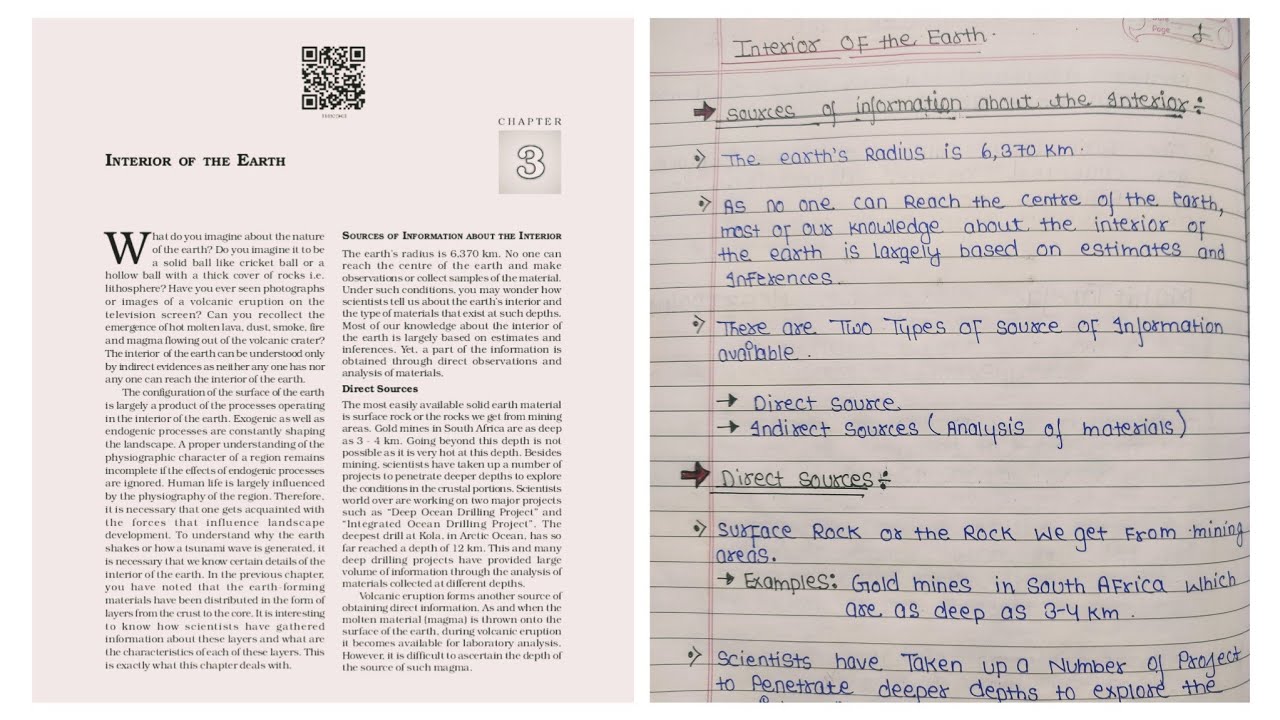 CHAPTER
3
INTERIOR OF THE EARTH
What do you imagine about the nature
of the earth? Do you imagine it to be
a solid ball like cricket ball or a
hollow ball with a thick cover of rocks i.e.
lithosphere? Have you ever seen photographs
or images of a volcanic eruption on the
television screen? Can you recollect the
emergence of hot molten lava, dust, smoke, fire
and magma flowing out of the volcanic crater?
The interior of the earth can be understood only
by indirect evidences as neither any one has nor
any one can reach the interior of the earth.
The configuration of the surface of the earth
is largely a product of the processes operating
in the interior of the earth. Exogenic as well as
endogenic processes are constantly shaping
the landscape. A proper understanding of the
physiographic character of a region remains
incomplete if the effects of endogenic processes
are ignored. Human life is largely influenced
by the physiography of the region. Therefore,
it is necessary that one gets acquainted with
the forces that influence landscape
development. To understand why the earth
shakes or how a tsunami wave is generated, it
is necessary that we know certain details of the
interior of the earth. In the previous chapter,
you have noted that the earth-forming
materials have been distributed in the form of
layers from the crust to the core. It is interesting
to know how scientists have gathered
information about these layers and what are
the characteristics of each of these layers. This
is exactly what this chapter deals with.
SOURCES OF INFORMATION ABOUT THE INTERIOR
The earth's radius is 6,370 km. No one can
reach the centre of the earth and make
observations or collect samples of the material.
Under such conditions, you may wonder how
scientists tell us about the earth's interior and
the type of materials that exist at such depths.
Most of our knowledge about the interior of
the earth is largely based on estimates and
inferences. Yet, a part of the information is
obtained through direct observations and
analysis of materials.
Direct Sources
The most easily available solid earth material
is surface rock or the rocks we get from mining
areas. Gold mines in South Africa are as deep
as 3 - 4 km. Going beyond this depth is not
possible as it is very hot at this depth. Besides
mining, scientists have taken up a number of
projects to penetrate deeper depths to explore
the conditions in the crustal portions. Scientists
world over are working on two major projects
such as "Deep Ocean Drilling Project" and
"Integrated Ocean Drilling Project". The
deepest drill at Kola, in Arctic Ocean, has so
far reached a depth of 12 km. This and many
deep drilling projects have provided large
volume of information through the analysis of
materials collected at different depths.
Volcanic eruption forms another source of
obtaining direct information. As and when the
molten material (magma) is thrown onto the
surface of the earth, during volcanic eruption
it becomes available for laboratory analysis.
However, it is difficult to ascertain the depth of
the source of such magma.
Page
Interior OF the Earth.
→ Sources of information about the Interior:
The earth's Radius is 6,370 Km.
As no one can Reach the centre of the Earth,
most of our knowledge about the interior of
the earth is largely based on estimates and
Inferences.
There are Two Types of source of Information
available.
→ Direct source
→ Indirect Sources (Analysis of materials)
→ Direct sources:
Surface Rock or the Rock we get from mining
areas.
→ Examples: Gold mines in South Africa which
are as deep as 3-4 km.
Scientists have Taken up a Number of Project
to Penetrate deeper depths to explore the